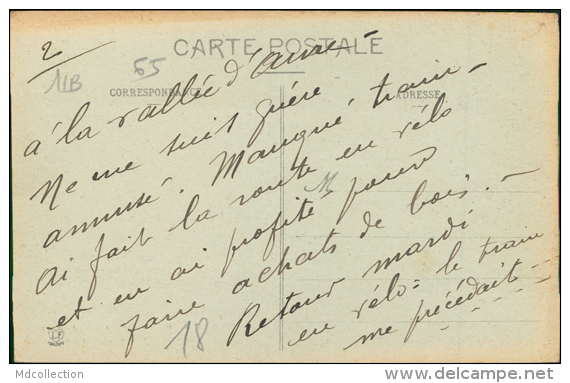 2
11B
65
CARTE POSTALE
CORRESPONDANCE
ADRESSE
à la vallée d'aure -
Ne me suis guère
amusé. Manqué train -
Ai fait la route en vélo
et en ai profité pour
faire achats de bois. -
Retour mardi
en vélo = le train
me précédait -
M
18
LF
Mdcollection
www.delcampe.net